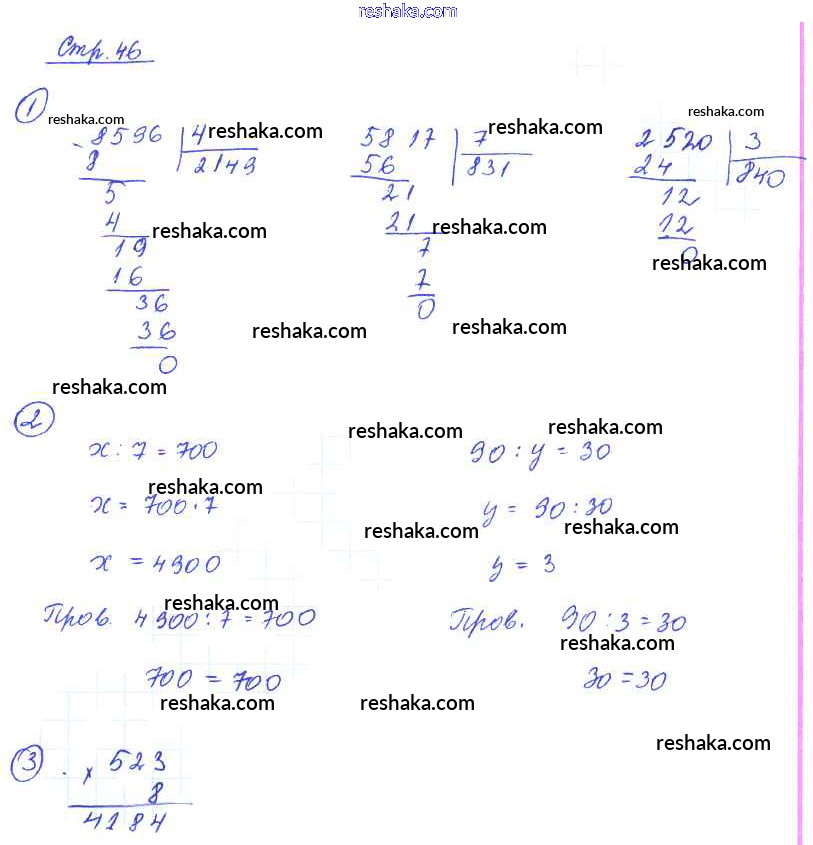 reshaka.com
Стр. 46
1
reshaka.com reshaka.com
8596 4 reshaka.com 5817 7 reshaka.com 2520 3
8 2149 56 831 24 840
5 21 12
4 reshaka.com 21 reshaka.com 12
19 7 0
16 7 reshaka.com
36 0
36 reshaka.com reshaka.com
0
reshaka.com
2
reshaka.com reshaka.com
x : 7 = 700 90 : y = 30
reshaka.com
x = 700 · 7 y = 90 : 30
reshaka.com reshaka.com
x = 4900 y = 3
reshaka.com
Пров. 4900 : 7 = 700 Пров. 90 : 3 = 30
reshaka.com
700 = 700 30 = 30
reshaka.com reshaka.com
reshaka.com
3
× 523
8
4184